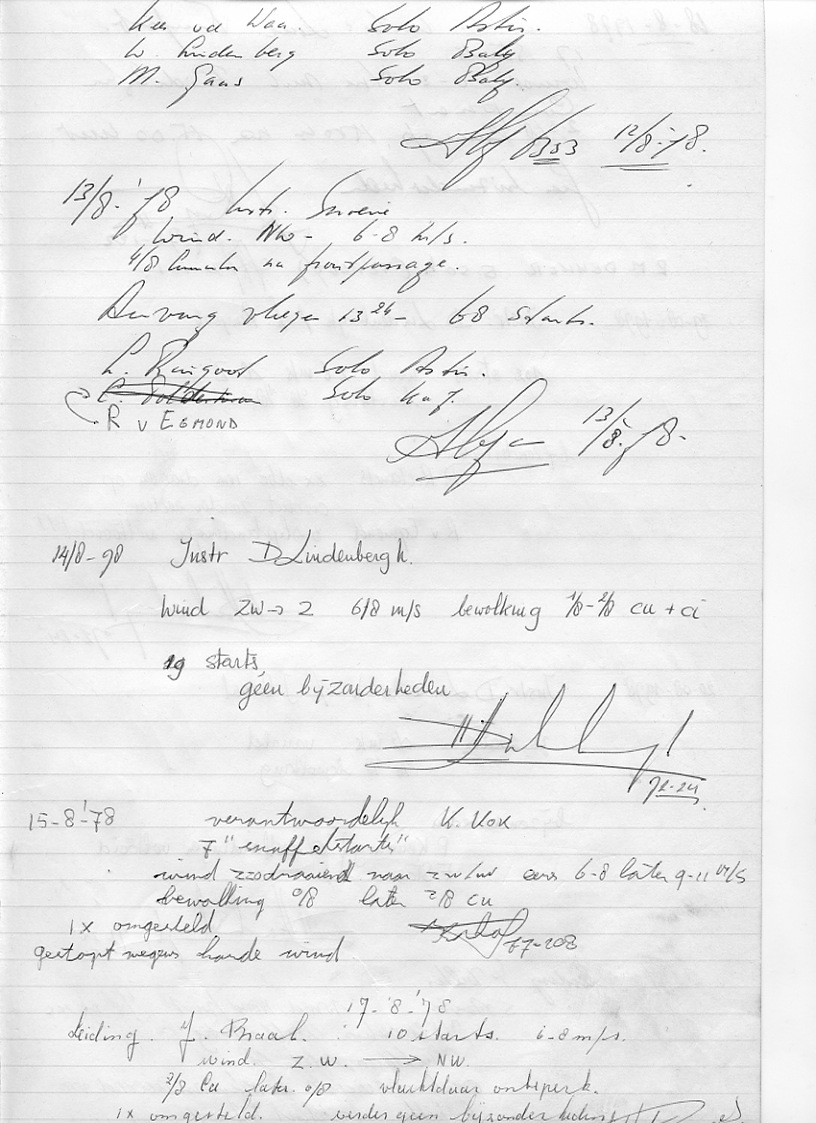 Kees vd Waa. Solo Astir.
W. Lindenberg Solo Baby
M. Gaas Solo Baby.
12/8-'78.
13/8-'78 Instr. 
Wind. NW- 6-8 m/s.
4/8 Cumulus na frontpassage.
Aanvang vliegen 13 24 - 68 starts.
L. Ruigoor Solo Astir.
Solo Ka 7.
R v EGMOND
13/8-'78.
14/8-78 Instr D Lindenbergh.
Wind ZW → Z 6/8 m/s bewolking 1/8-2/8 cu + ci
19 starts,
geen bijzonderheden
72-24
15-8-'78 verantwoordelijk K. Kok
7 "
wind zzo draaiend naar zw/w eers 6-8 later 9-11 m/s
bewolking 0/8 later 2/8 cu
1x omgesteld
67-208
gestopt wegens harde wind
17-8-'78
Leiding. J. Braal. 10 starts. 6-8 m/s.
wind. Z.W. → NW.
2/8 Cu later 0/8 vluchtduur onbeperk.
1x omgesteld. verder geen bijzonderheden